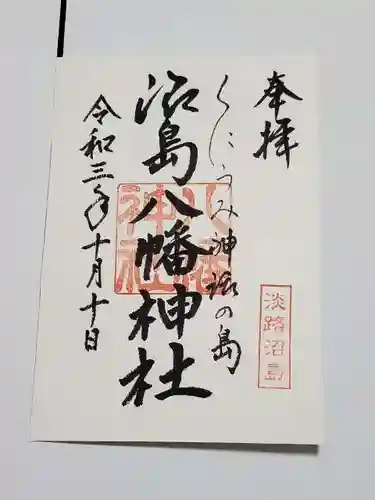 奉拝
くにうみ神話の島
沼島八幡神社
令和三年十月十日
八幡
神社
淡路沼島